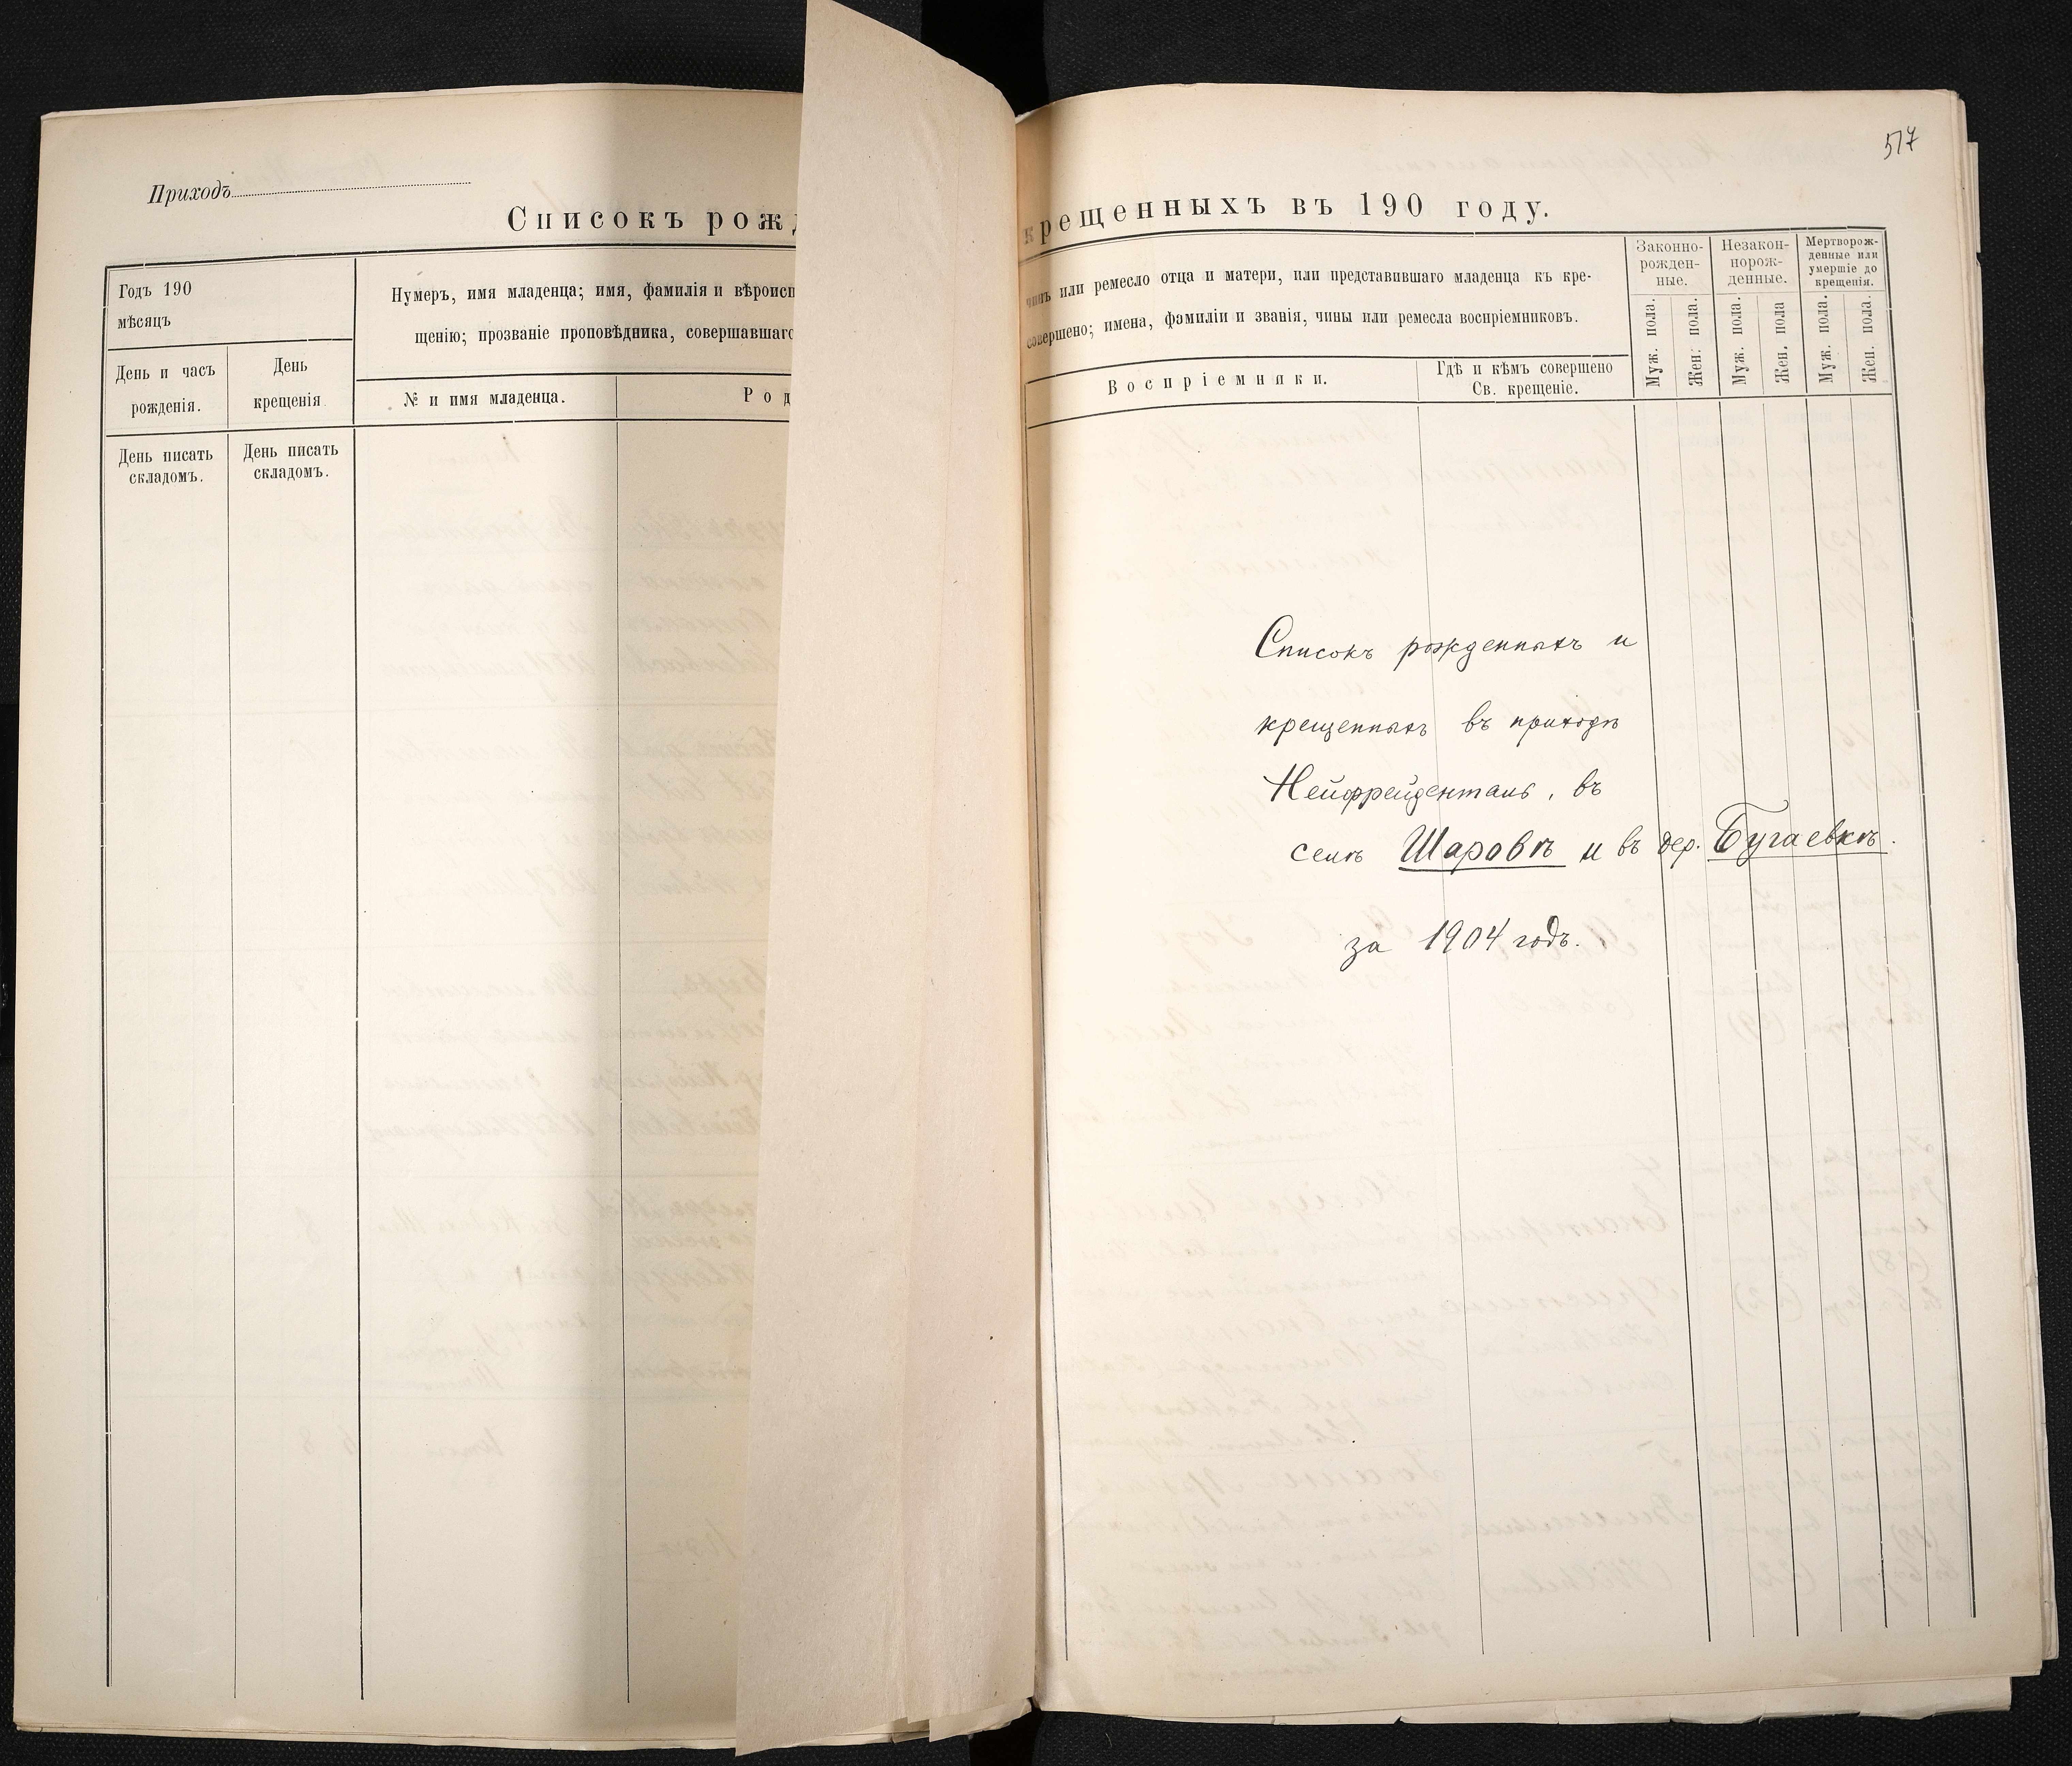 Приходъ
Списокъ рожд
Годъ 190
мѣсяцъ
День и часъ
рожденія.
День
крещенія
Нумеръ, имя младенца; имя, фамилія и вѣроисп
щенію; прозваніе проповѣдника, совершавшаго
№ и имя младенца.
Род
День писать
складомъ.
День писать
складомъ.
517
крещенныхъ въ 190 году.
чинъ или ремесло отца и матери, или представившаго младенца къ кре-
совершено; имена, фамиліи и званія, чины или ремесла воспріемниковъ.
Воспріемники.
Гдѣ и кѣмъ совершено
Св. крещеніе.
Законно-
рожден-
ные.
Незакон-
норож-
денные.
Мертворож-
денные или
умершіе до
крещенія.
Муж. пола.
Жен. пола.
Муж. пола.
Жен. пола
Муж. пола.
Жен. пола.
Списокъ рожденныхъ и
крещенныхъ въ приходѣ
Нейфрейденталь, въ
селѣ Шаровѣ и въ дер. Бугаевкѣ.
за 1904 годъ.